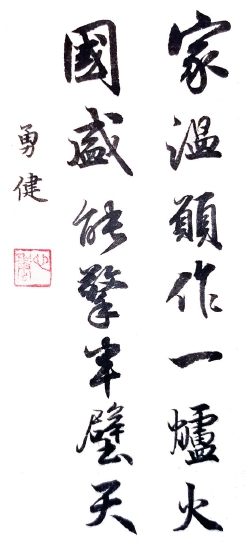 家溫願作一爐火
國盛能擎半壁天
勇健